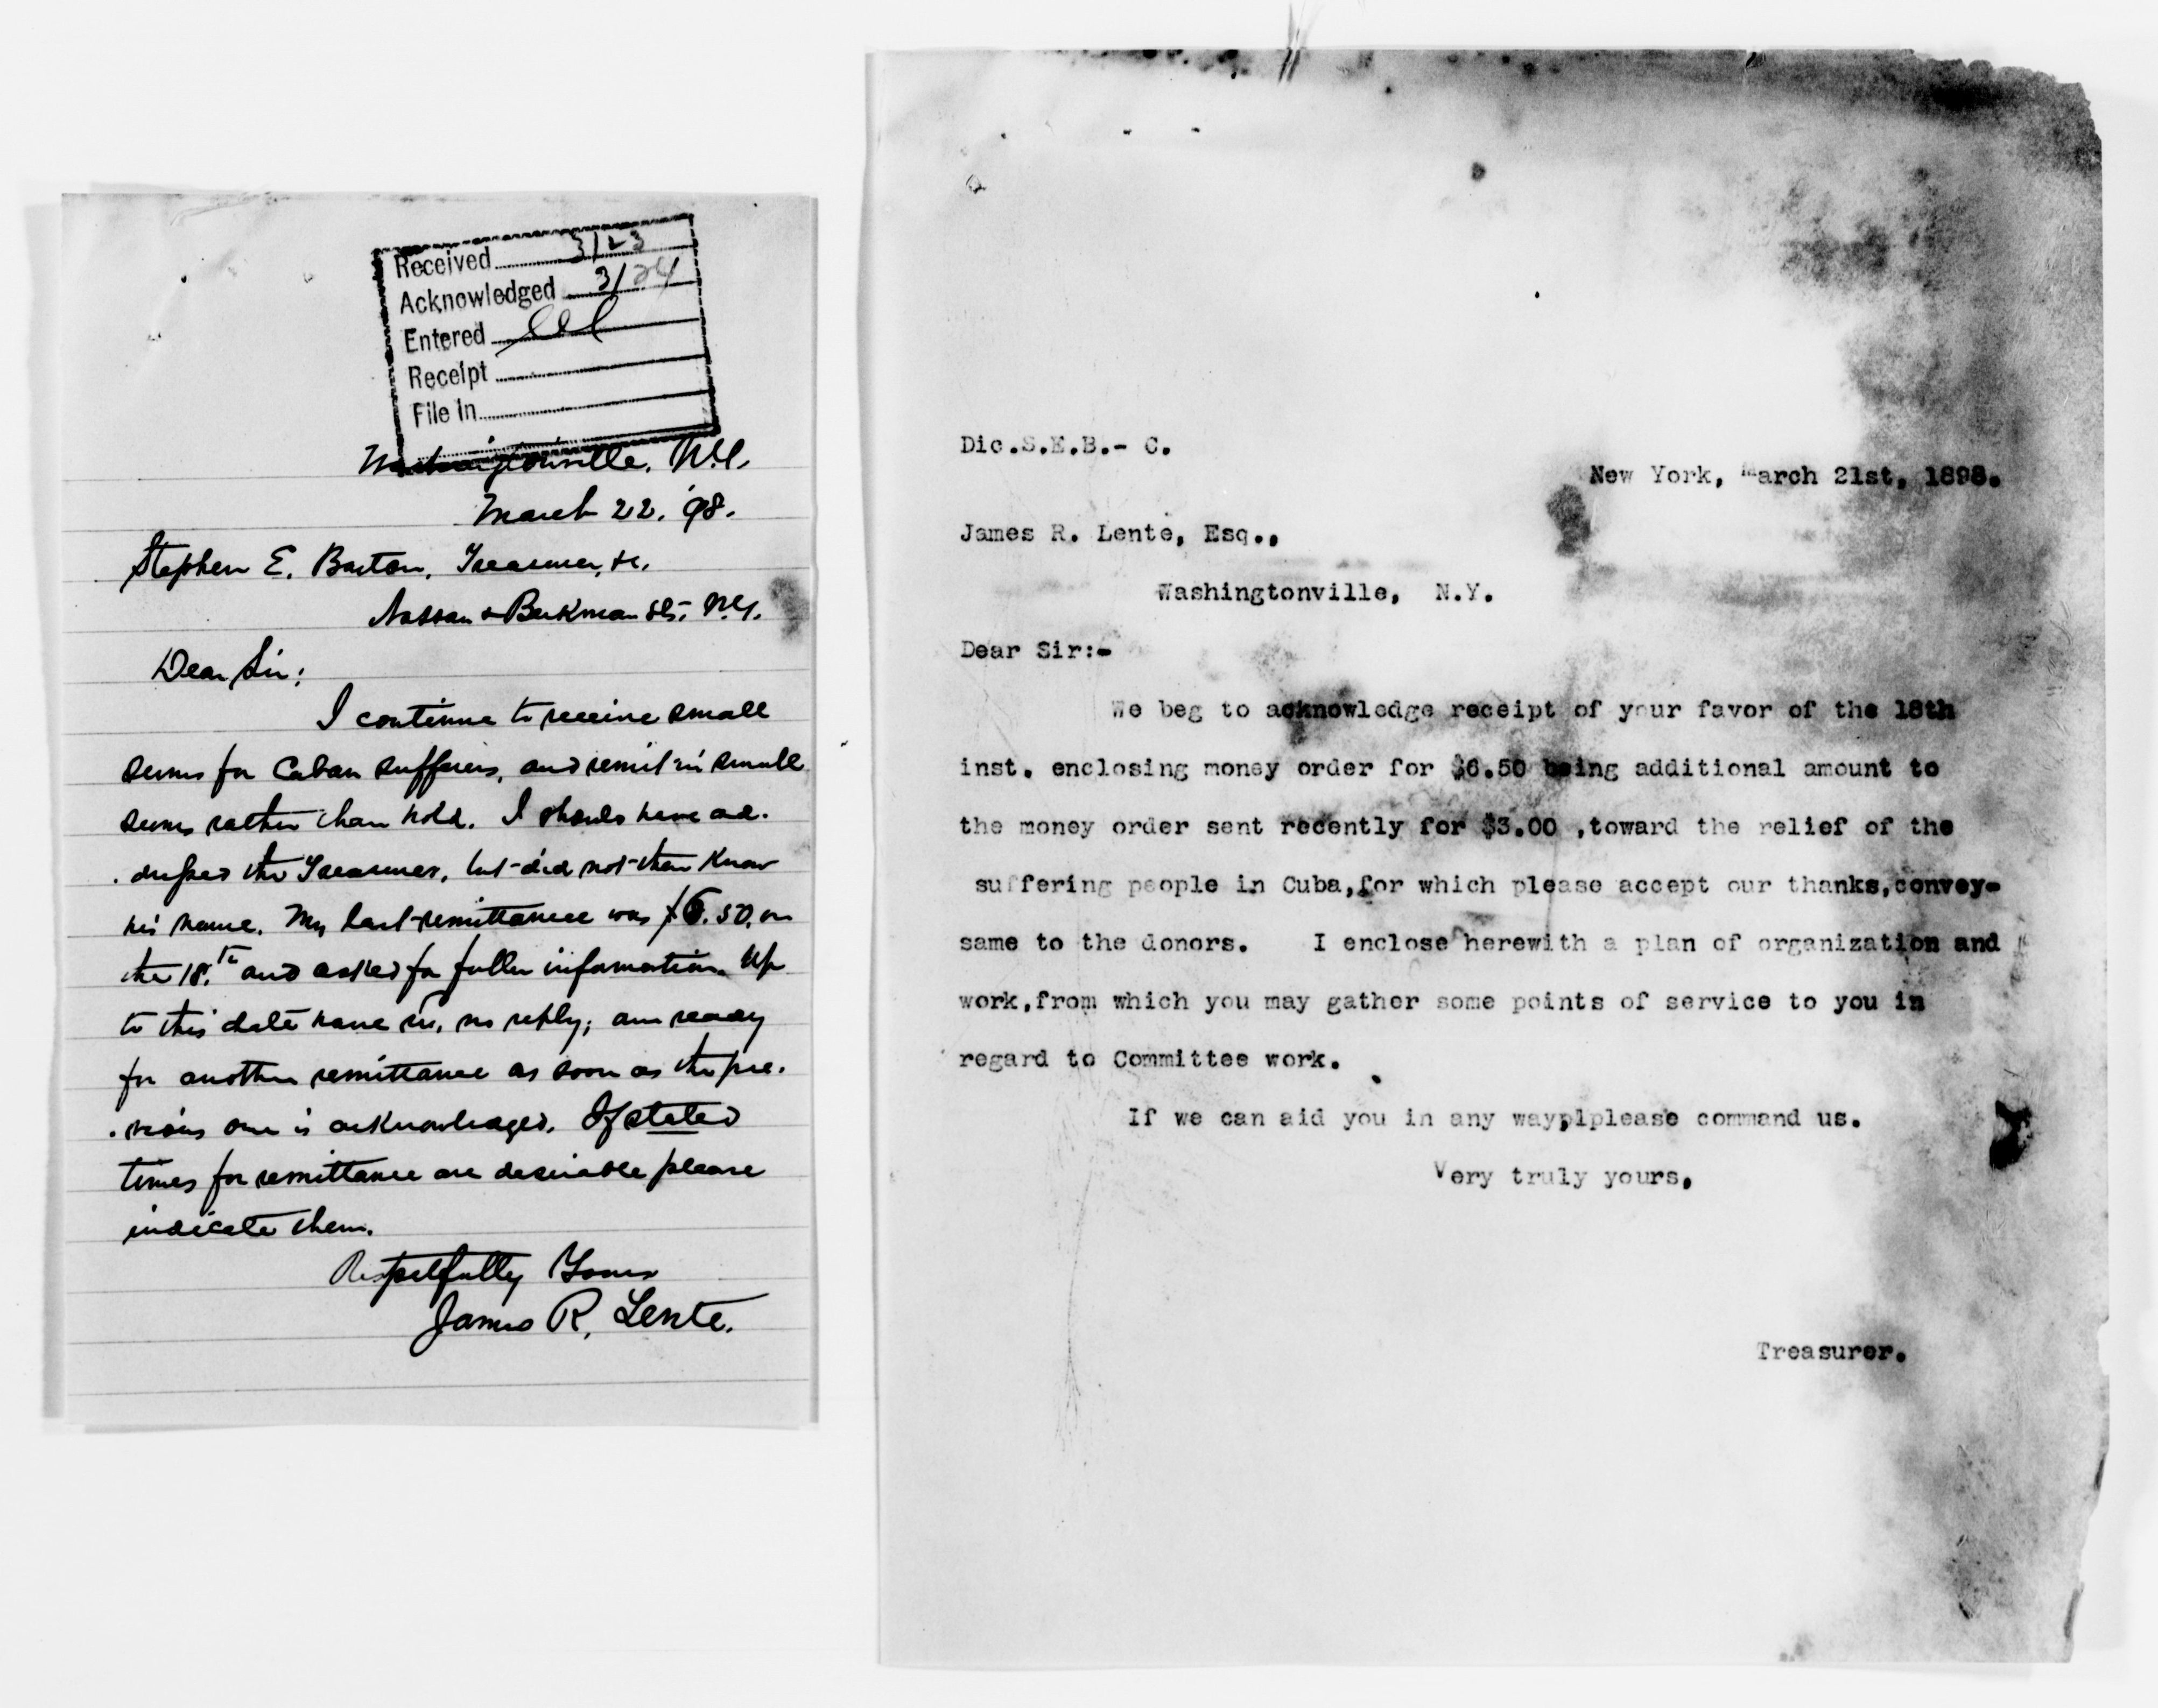 Received 3/23
Acknowledged 3/24
Entered
Receipt
File In
Washingtonville, N.Y.
March 22, '98.
Stephen E. Barton, Treasurer, &c.
Nassau & Beekman Sts. N.Y.
Dear Sir:
I continue to receive small
sums for Cuban sufferers, and remit in small
sums rather than hold. I should have ad-
-dressed the Treasurer, but did not then know
his name. My last remittance was $6.50, on
the 18.th and asked for fuller information. Up
to this date have no reply; am ready
for another remittance as soon as the pre-
-vious one is acknowledged. If stated
times for remittance are desirable please
indicate them.
Respectfully Yours
James R. Lente.
Dic.S.E.B.- C.
New York, March 21st, 1898.
James R. Lente, Esq.,
Washingtonville, N.Y.
Dear Sir:-
We beg to acknowledge receipt of your favor of the 18th
inst. enclosing money order for $6.50 being additional amount to
the money order sent recently for $3.00 ,toward the relief of the
suffering people in Cuba,for which please accept our thanks,convey-
same to the donors. I enclose herewith a plan of organization and
work,from which you may gather some points of service to you in
regard to Committee work.
If we can aid you in any way,plplease command us.
Very truly yours,
Treasurer.